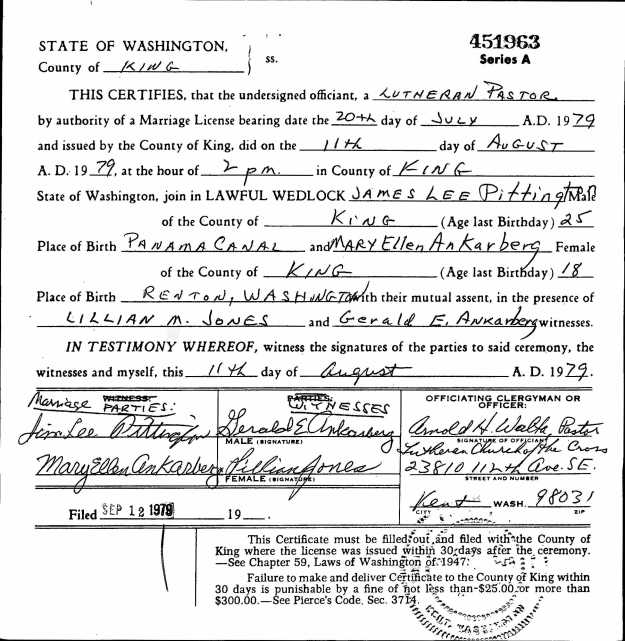 451963
Series A
STATE OF WASHINGTON,
County of KING ss.
THIS CERTIFIES, that the undersigned officiant, a LUTHERAN PASTOR
by authority of a Marriage License bearing date the 20th day of JULY A.D. 1979
and issued by the County of King, did on the 11th day of AUGUST
A. D. 1979, at the hour of 2 pm. in County of KING
State of Washington, join in LAWFUL WEDLOCK JAMES LEE Pittington Male
of the County of KING (Age last Birthday) 25
Place of Birth PANAMA CANAL and MARY Ellen Ankarberg Female
of the County of KING (Age last Birthday) 18
Place of Birth RENTON, WASHINGTON with their mutual assent, in the presence of
LILLIAN M. JONES and Gerald E. Ankarberg witnesses.
IN TESTIMONY WHEREOF, witness the signatures of the parties to said ceremony, the
witnesses and myself, this 11th day of August A. D. 1979.
Marriage WITNESS: PARTIES:
Jim Lee Pittington
Mary Ellen Ankarberg
PARTIES: WITNESSES
Gerald E Ankarberg
MALE (SIGNATURE)
Lillian Jones
FEMALE (SIGNATURE)
OFFICIATING CLERGYMAN OR
OFFICER:
Arnold H. Pastor
SIGNATURE OF OFFICIANT
Lutheran Church of the Cross
23810 112th Ave. SE.
STREET AND NUMBER
Kent WASH. 98031
CITY ZIP
Filed SEP 12 1979 19
This Certificate must be filled out and filed with the County of
King where the license was issued within 30 days after the ceremony.
—See Chapter 59, Laws of Washington of 1947.
Failure to make and deliver Certificate to the County of King within
30 days is punishable by a fine of not less than $25.00 or more than
$300.00—See Pierce's Code, Sec. 3714.